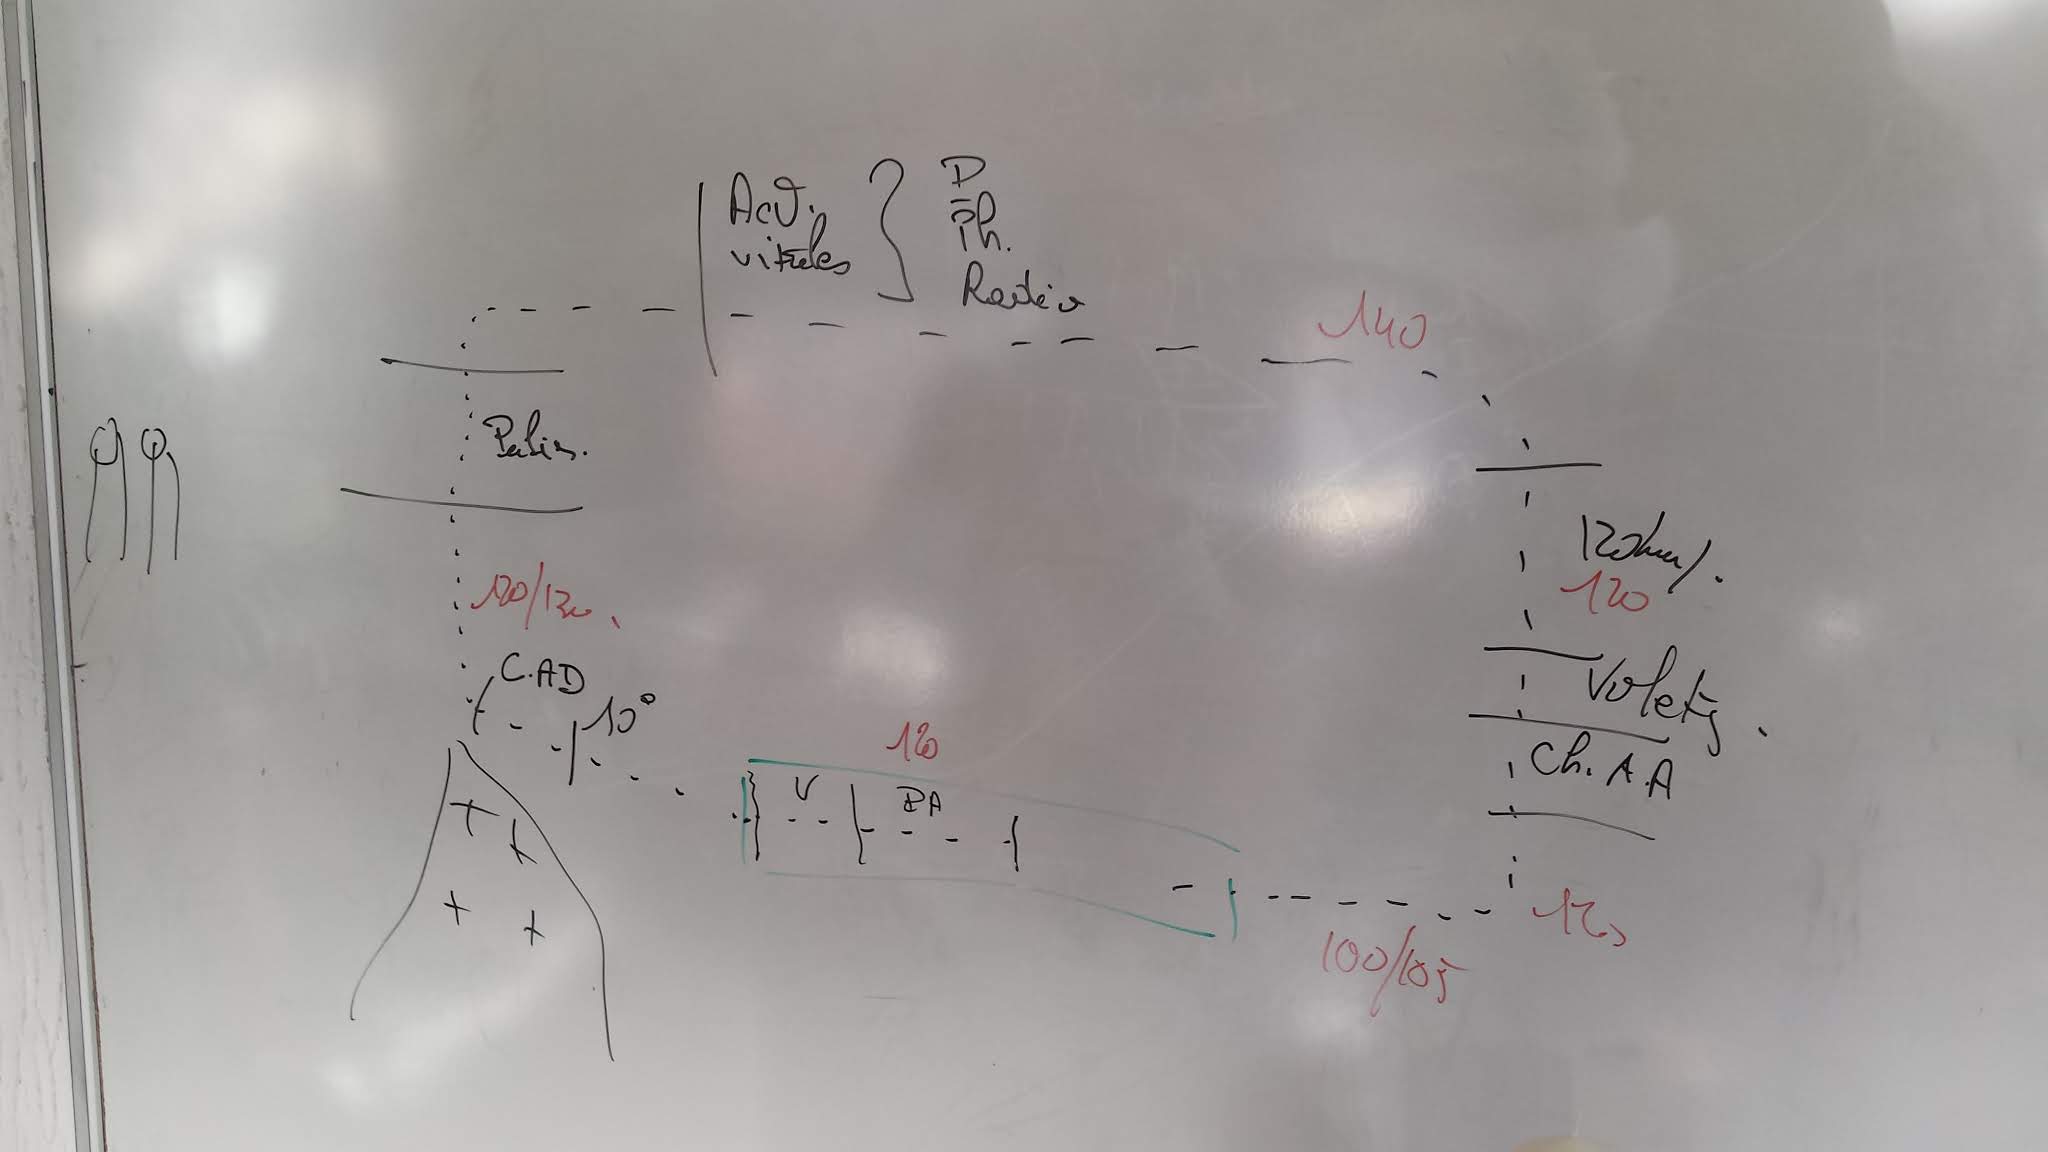 Act.
vitales
P
Ph.
Radio
140
Palier.
120 km/.
120
120/130
C.AD
10°
Volets
Ch. A.A
120
V
PA
100/105